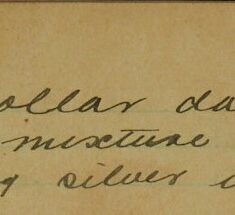 ollar da
mixture
g silver i